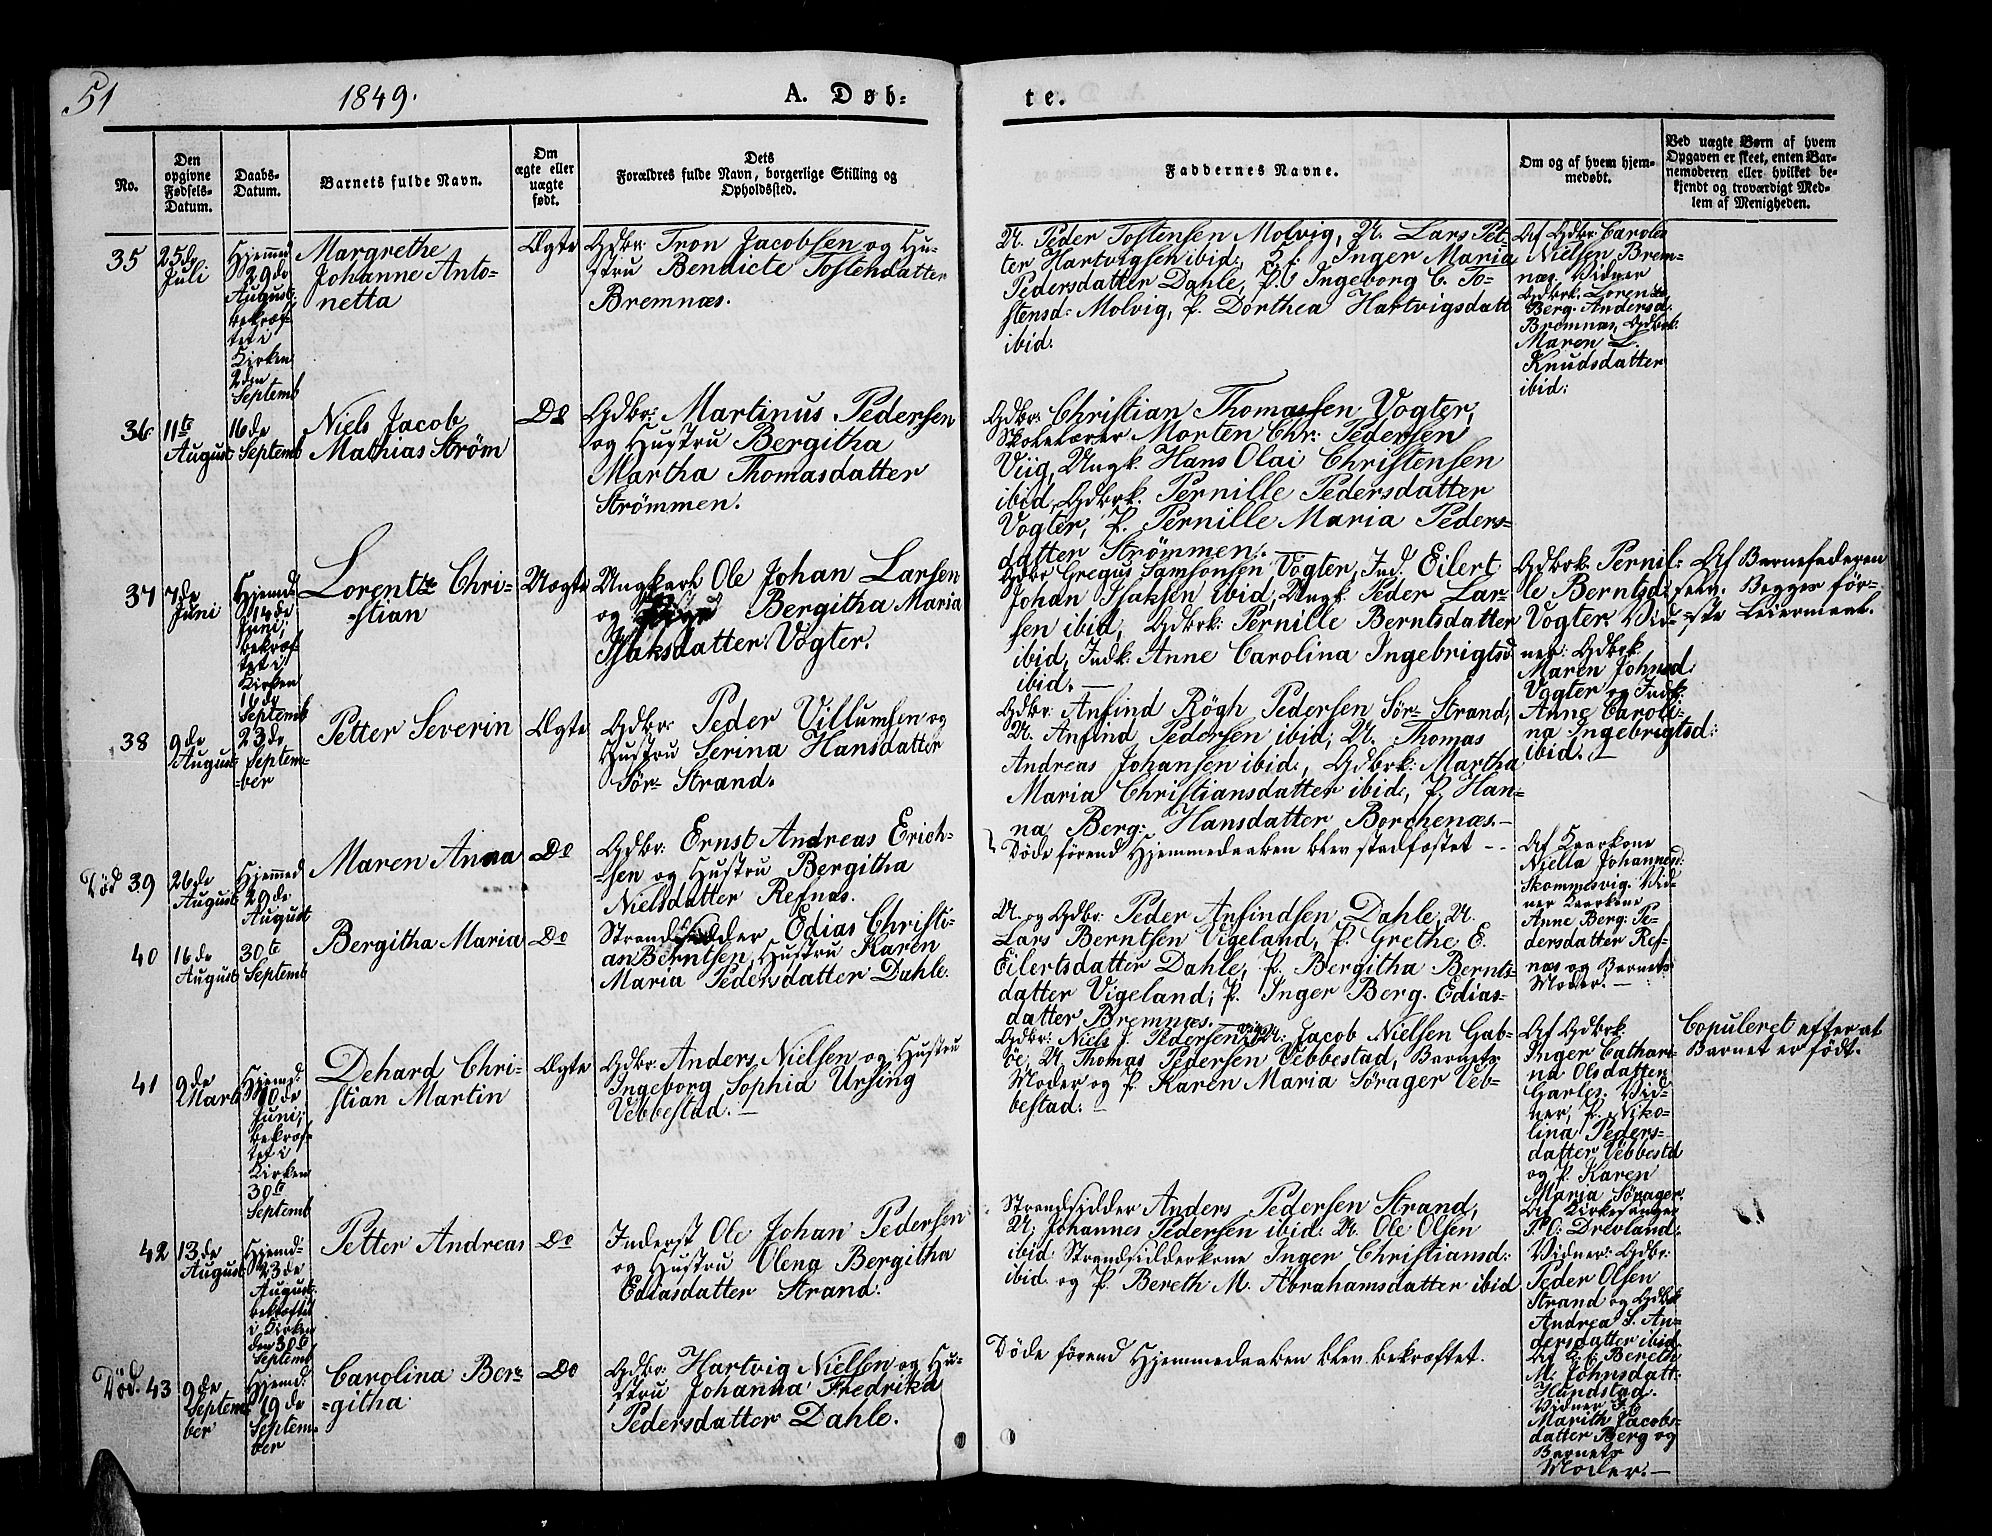 51
1849.
A. Døb-
te.
No.
Den
opgivne
Fødsels-
Datum.
Daabs-
Datum.
Barnets fulde Navn.
Om
ægte eller
uægte
født.
Dets
Forældres fulde Navn, borgerlige Stilling og
Opholdssted.
Faddernes Navne.
Om og af hvem hjem-
medøbt.
Ved uægte Børn af hvem
Opgaven er skeet, enten Bar-
nemoderen eller hvilket be-
kjendt og troværdigt Med-
lem af Menigheden.
35
25de
Juli
Hjemmed
29de
August,
bekræf-
tet i
Kirken
2den
Septemb
Margrethe
Johanne Anto-
netta
Ægte
Gdbr: Tron Jacobsen og Hu-
stru Bendicte Tostensdatter
Bremnæs.
U. Peder Tostensen Molvig, U. Lars Pet-
ter Hartvigsen ibid, Inger Maria
Pedersdatter Dahle, P. Ingeborg C. To-
stensd: Molvig, P. Dorthea Hartvigsdatt
ibid.
Af Gdbr: Carolus
Nielsen Brem-
næs. Vidner
Gdbrk. Lorentze
Berg. Andersd.
Bremnæs, Gdbrk:
Maren L.
Knudsdatter
ibid:
36
11te
August
16de
Septemb
Niels Jacob
Mathias Strøm
Do
Gdbr: Martinus Pedersen
og Hustru Bergitha
Martha Thomasdatter
Strömmen.
Gdbr: Christian Thomassen Vogter,
Skolelærer Morten Chr: Pedersen
Viig, Ungk. Hans Olai Christensen
ibid, Gdbrk. Pernille Pedersdatter
Vogter, P. Pernille Maria Peders-
datter Strömmen.
37
7de
Juni
Hjemd.
14de
Juni;
bekræf-
tet i
Kirken
16de
Septemb
Lorentz Chri-
-stian
Uægte
Ungkarl Ole Johan Larsen
og Bergitha Maria
Isaksdatter Vogter.
Gdbr Gregus Samsonsen Vogter, Ind. Eilert
Johan Isaksen ibid, Ungk Peder Lar-
sen ibid, Gdbrk: Pernille Berntsdatter
ibid, Indk: Anne Carolina Ingebrigtsd
ibid.
Gdbrk. Pernil-
le Berntsd.
Vogter. Vid-
ner: Gdbrk
Maren Johnsd
Vogter og Indk.
Anne Caroli-
na Ingebrigtsd:
ibid.
Af Barnefaderen
seen. Begges før-
ste Leiermaal.
38
9de
August
23de
Septem-
-ber
Petter Severin
Ægte
Gdbr: Peder Villumsen og
Hustru Serina Hansdatter
Sör-Strand.
Gdbr: Anfind Rögh Pedersen Sör-Strand,
U. Anfind Pedersen ibid; U. Thomas
Andreas Johansen ibid., Gdbrk: Martha
Maria Christiansdatter ibid:, P. Han-
na Berg: Hansdatter Borchenæs.
Død 39
26de
August
Hjemmed
29de
August
Maren Anna
Do
Gdbr: Ernst Andreas Erich-
-sen og Hustru Bergitha
Nielsdatter Refnæs.
Døde førend Hjemmedaaben blev stadfæstet
Af Kaarkone
Niella Johannesd:
Skommesvig. Vid-
ner Kaarkone
Anne Berg: Pe-
dersdatter Ref-
næs og Barnets
Moder.
40
16de
August
30te
Septemb
Bergitha Maria
Do
Strandsidder Edias Christi-
an Berntsen, Hustru Karen
Maria Pedersdatter Dahle.
U. og Gdbr: Peder Anfindsen Dahle, U.
Lars Berntsen Vigeland, P. Grethe E.
Eilertsdatter Dahle, P. Bergitha Bernts-
datter Vigeland; P. Inger Berg. Edias-
datter Bremnæs.
41
9de
Marts
Hjemd:
10de
Juni;
bekræf-
tet i
Kirken
30te
Septemb
Dehard Chri-
stian Martin
Ægte
Gdbr: Anders Nielsen og Hustru
Ingeborg Sophia Ursing
Vebbestad.
Gdbr: Niels J. Pedersen Viig, U: Jacob Nielsen Gab-
öe, U. Thomas Pedersen Vebbestad, Barnets
Moder og P. Karen Maria Sörager Veb-
bestad.
Af Gdbrk.
Inger Cathari-
na Olsdatter
Garles. Vid-
ner, P. Niko-
lina Peders-
datter Vebbestd
og P. Karen
Maria Sörager.
Copuleret efter at
Barnet er født.
42
13de
August
Hjemd-
23de
August.
bekræftet
i Kirken
den 30te
Septemb
Petter Andreas
Do
Inderst Ole Johan Pedersen
og Hustru Olena Bergitha
Ediasdatter Strand.
Strandsidder Anders Pedersen Strand,
U; Johannes Pedersen ibid: U. Ole Olsen
ibid: Strandsidderkone Inger Christiansd:
ibid. og P. Bereth M. Abrahamsdatter ibid
Af Kirkesanger
P.O: Drevland.
Vidner: Gdbr:
Peder Olsen
Strand og Gdbrk
Andrea S. An-
dersdatter ibid.
Død. 43
9de
Septem-
ber
Hjemd:
19de
Septem-
ber
Carolina Ber-
-githa
Do
Gdbr: Hartvig Nielsen og Hu-
stru Johanna Fredrika
Pedersdatter Dahle.
Døde førend Hjemmedaaben blev bekræftet.
Bereth
M. Johnsdatt:
Hundstad.
Vidner
Marith Jacobs-
datter Berg og
Barnets
Moder.